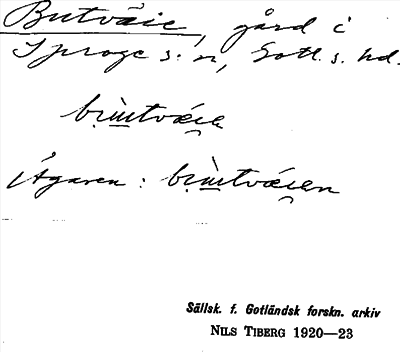 Butväie, gård i
Sproge s:n, Gotl. s. hd.
Ägaren:
Sällsk. f. Gotländsk forskn. arkiv
NILS TIBERG 1920—23